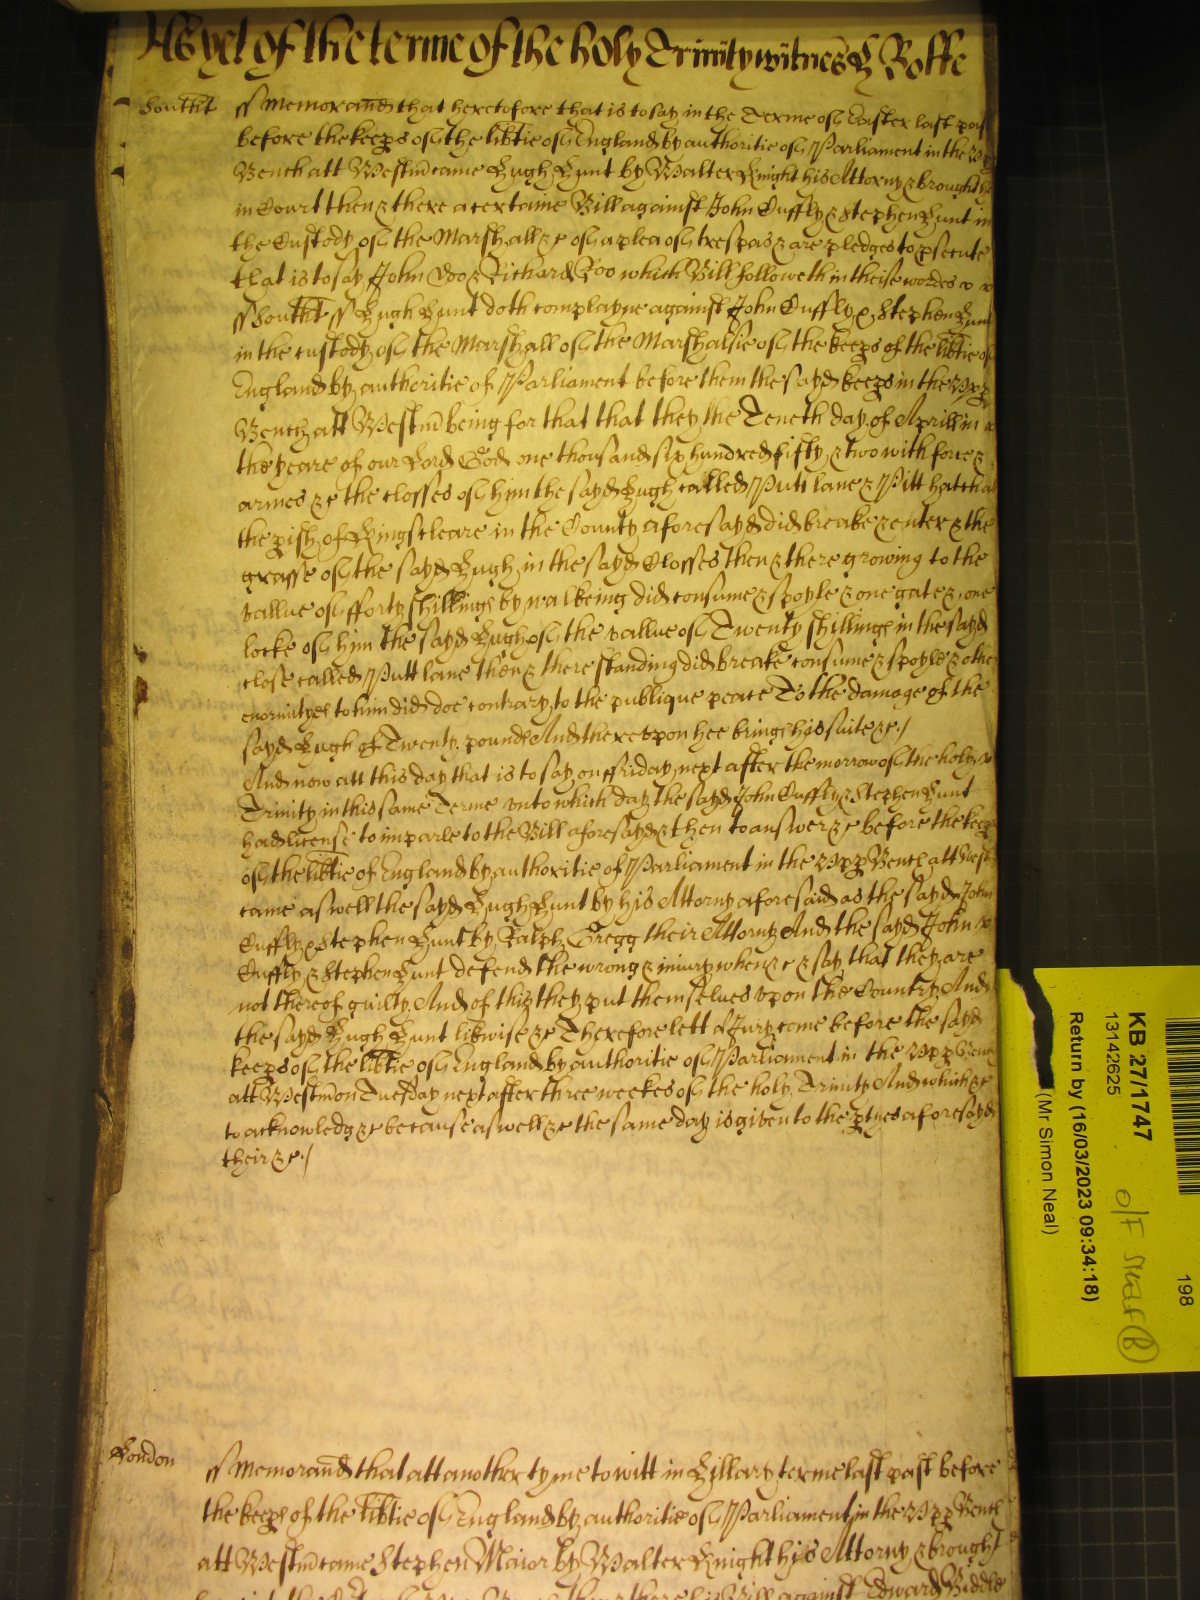 As yet of the terme of the holy Trinity witnes H Rolle
Southt ss Memorand that heretofore that is to say in the Terme of Easter last past
before the keeps of the libtie of England by authoritie of Parliament in the Upp
Bench att Westm came Hugh Hunt by Walter Knight his Attorny & brought
in Court then & there a certaine Bill against John Cuffly & Stephen Hunt in
the Custody of the Marshall &c of a plea of trespas & are pledges to psecute
that is to say John Doo & Richard Roo which Bill followeth in theise wordes
ss Southt ss Hugh Hunt doth complayne against John Cuffly & Stephen Hunt
in the custody of the Marshall of the Marshalsie of the keeps of the libtie of
England by authoritie of Parliament before them the sayd keeps in the Upp
Bench att Westm being for that that they the Tenth day of Aprill in
the yeare of our Lord God one thousand six hundred fifty & two with force &
armes &c the closses of him the sayd Hugh called Putt lane & Pitt hatch att
the pish of Kingscleare in the County aforesayd did breake & enter & the
grasse of the sayd Hugh in the sayd Closses then & there growing to the
vallue of fforty shillings by walkeing did consume & spoyle & one gate & one
locke of him the sayd Hugh of the vallue of Twenty shillings in the sayd
close called Putt lane then & there standing did breake consume & spoyle & other
enormityes to him did doe contrary to the publique peace To the damage of the
sayd Hugh of Twenty pounds And thereupon hee brings his suite &c./
And now att this day that is to say on ffriday next after the morrow of the holy
Trinity in this same Terme unto which day the sayd John Cuffly & Stephen Hunt
had license to imparle to the Bill aforesayd & then to answer &c before the keeps
of the libtie of England by authoritie of Parliament in the Upp Bench att West
came aswell the sayd Hugh Hunt by his Attorny aforesaid as the sayd John
Cuffly & Stephen Hunt by Ralph Gregg their Attorny And the sayd John
Cuffly & Stephen Hunt defend the wrong & iniury when &c & say that they are
not thereof guilty And of this they put themselves upon the Country And
the sayd Hugh Hunt likwise &c Therefore lett a Jury come before the sayd
keeps of the libtie of England by authoritie of Parliament in the Upp Bench
att Westm on Tuesday next after three weekes of the holy Trinity And which &c
to acknowledg &c because aswell &c the same day is given to the ptyes aforesayd
their &c./
London ss Memorand that att another tyme to witt in Hillary terme last past before
the keeps of the libtie of England by authoritie of Parliament in the Upp Bench
att Westm came Stephen Maior by Walter Knight his Attorny & brought
Bill against Edward Biddle
KB 27/1747
13142625
Return by (16/03/2023 09:34:18)
(Mr. Simon Neal)
198
O/F